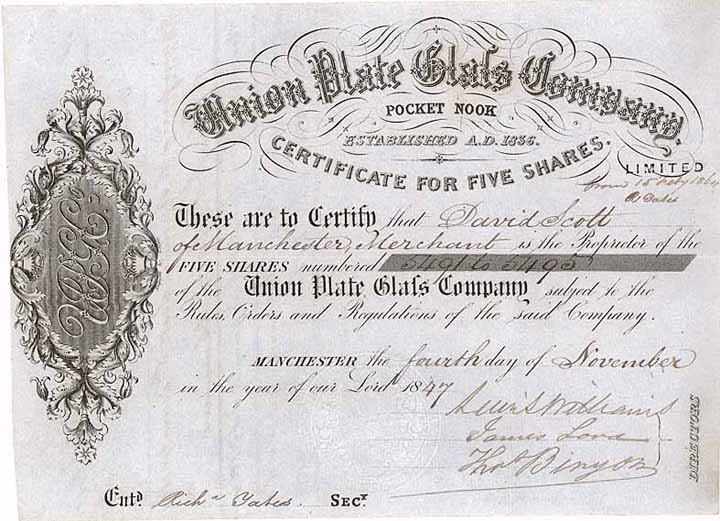 Union Plate Glass Company.
POCKET NOOK
ESTABLISHED A.D. 1836.
CERTIFICATE FOR FIVE SHARES.
LIMITED
from 15
R Yates
These are to Certify that David Scott
of Manchester, Merchant is the Proprietor of the
FIVE SHARES numbered 5491 to 5495
of the Union Plate Glass Company subject to the
Rules, Orders and Regulations of the said Company.
MANCHESTER the fourth day of November
in the year of our Lord 1847
Lewis Williams
James Lord
Thos Binyon
DIRECTORS
Entd. Richd Yates. Secy.